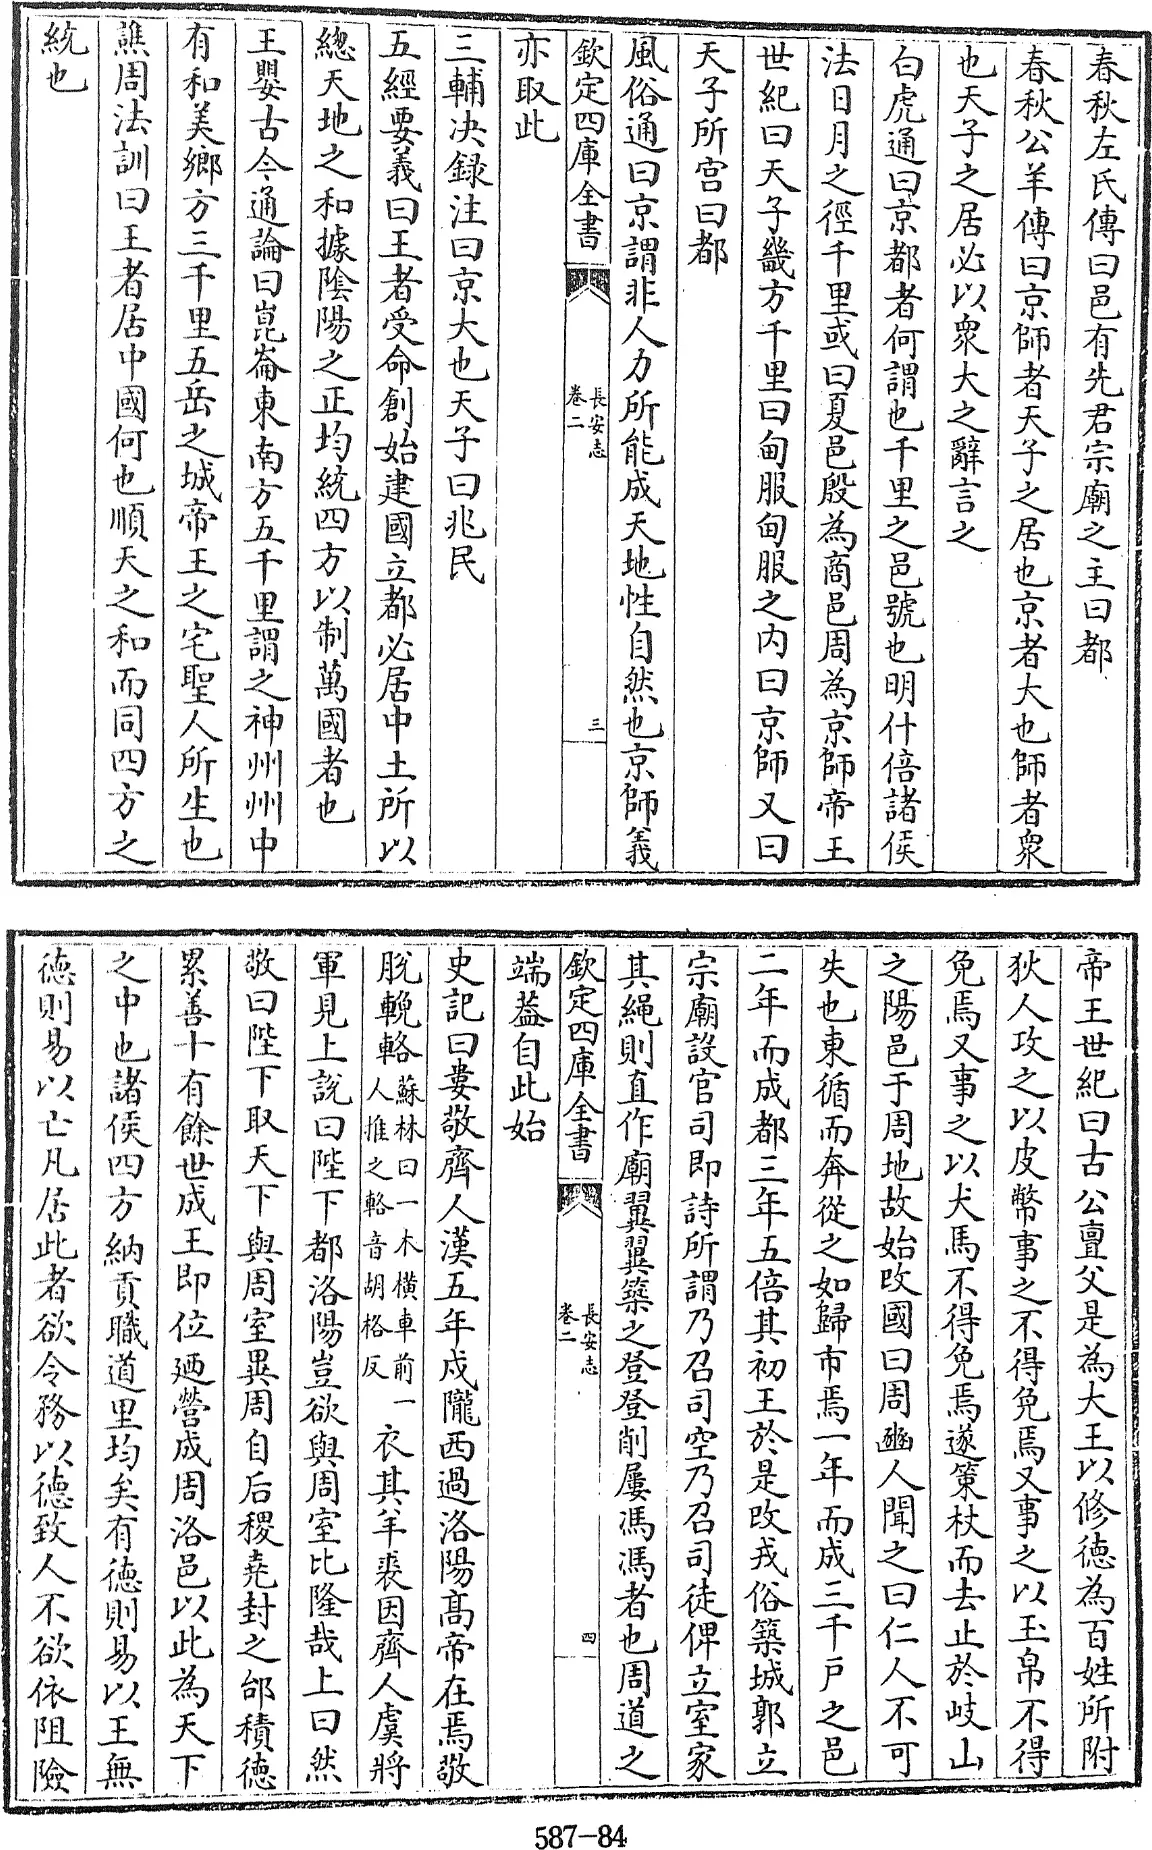 春秋左氏傳曰邑有先君宗廟之主曰都
春秋公羊傳曰京師者天子之居也京者大也師者衆
也天子之居必以衆大之辭言之
白虎通曰京都者何謂也千里之邑號也明什倍諸侯
法日月之徑千里或曰夏邑殷為商邑周為京師帝王
世紀曰天子畿方千里曰甸服甸服之内曰京師又曰
天子所宫曰都
風俗通曰京謂非人力所能成天地性自然也京師義
欽定四庫全書
長安志
卷二
三
亦取此
三輔决録注曰京大也天子曰兆民
五經要義曰王者受命創始建國立都必居中土所以
總天地之和據陰陽之正均統四方以制萬國者也
王嬰古今通論曰崑崙東南方五千里謂之神州州中
有和美鄉方三千里五岳之城帝王之宅聖人所生也
譙周法訓曰王者居中國何也順天之和而同四方之
統也
帝王世紀曰古公亶父是為大王以修德為百姓所附
狄人攻之以皮幣事之不得免焉又事之以玉帛不得
免焉又事之以犬馬不得免焉遂策杖而去止於岐山
之陽邑于周地故始改國曰周豳人聞之曰仁人不可
失也東循而奔從之如歸市焉一年而成三千戸之邑
二年而成都三年五倍其初王於是改戎俗築城郭立
宗廟設官司即詩所謂乃召司空乃召司徒俾立室家
其繩則直作廟翼翼築之登登削屢馮馮者也周道之
欽定四庫全書
長安志
卷二
四
端葢自此始
史記曰婁敬齊人漢五年戍隴西過洛陽髙帝在焉敬
脫輓輅蘇林曰一木横車前一人推之輅音胡格反衣其羊裘因齊人虞將
軍見上說曰陛下都洛陽豈欲與周室比隆哉上曰然
敬曰陛下取天下與周室異周自后稷堯封之邰積德
累善十有餘世成王即位廼營成周洛邑以此為天下
之中也諸侯四方納貢職道里均矣有德則易以王無
德則易以亡凡居此者欲令務以德致人不欲依阻險
587-84